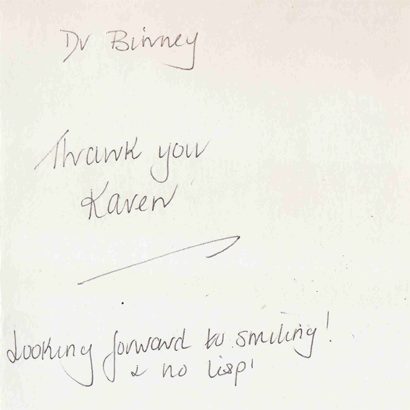 Dr Binney
Thank you
Karen
Looking forward to smiling!
& no lisp!